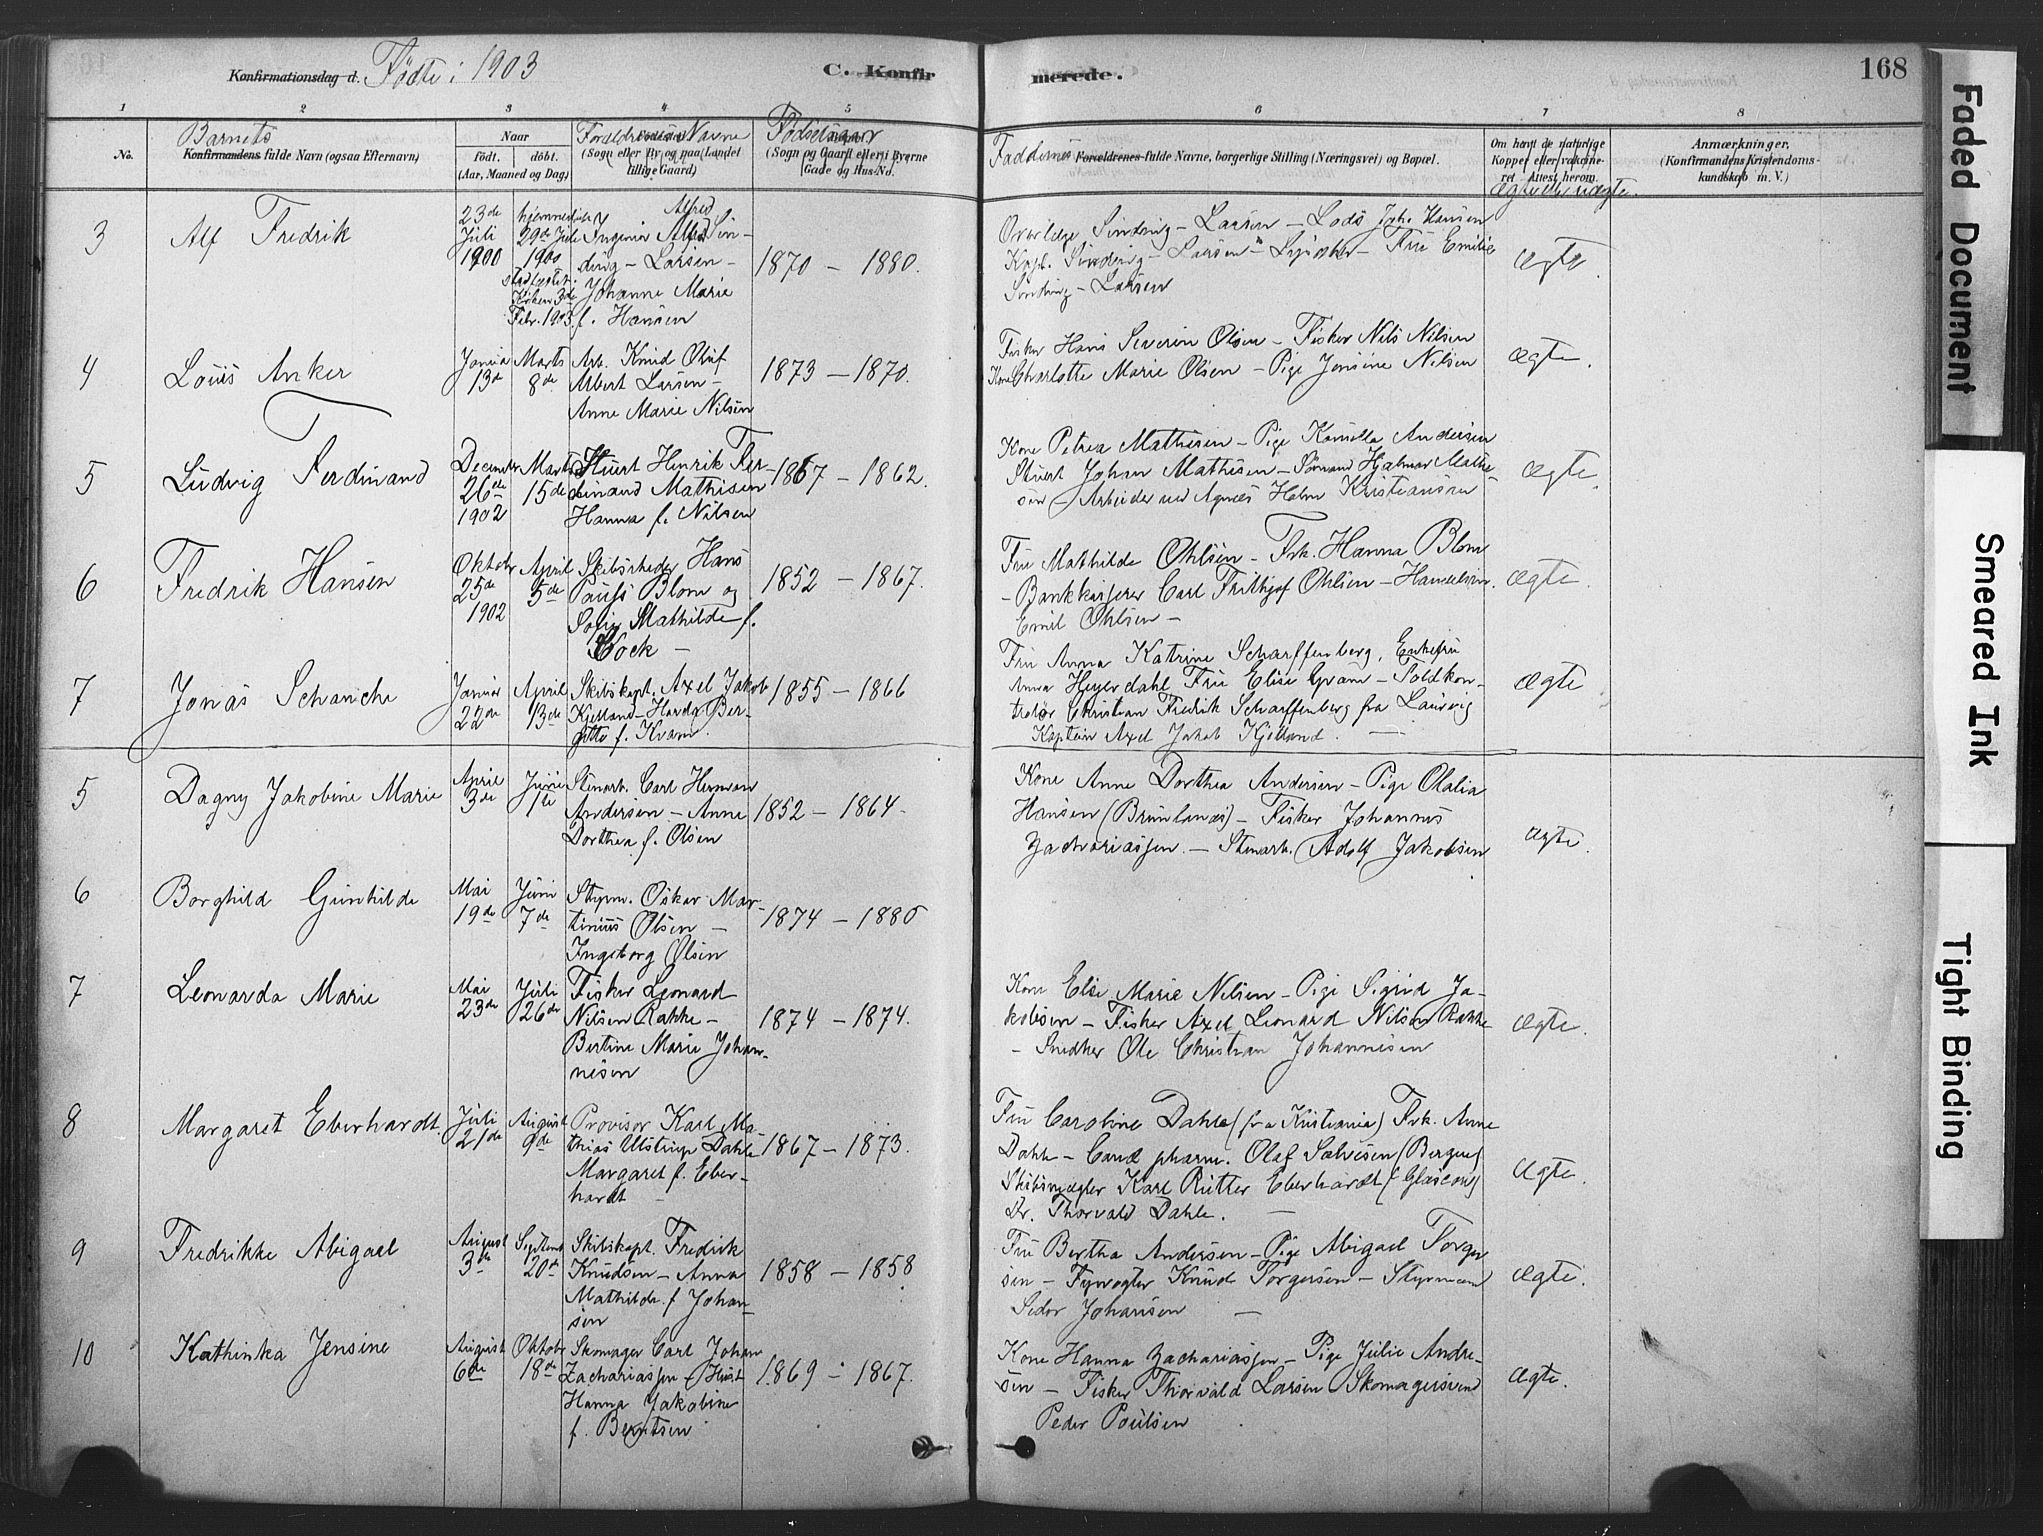 Konfirmationsdag d. Fødte i 1903
C. Konfirmerede.
168
1 2 3 4 5 6 7 8
No.
Barnets
Konfirmandens fulde Navn (ogsaa Efternavn)
Naar
født. døbt.
(Aar, Maaned og Dag)
Forældrenes Navne
(Sogn eller By og paa Landet
tillige Gaard)
Fødselsaar
(Sogn og Gaard eller i Byerne
Gade og Hus-No.
Faddernes Forældrenes fulde Navne, borgerlige Stilling (Næringsvei) og Bopæl.
Om havt de naturlige
Kopper eller vaksine-
ret. Attest herom.
Ægte el. uægte.
Anmærkninger.
(Konfirmandens Kristendoms-
kundskab m. V.)
3
Alf Fredrik
23de
Juli
1900
hjemmedøbt
29de Juli
1900
stadfæstet i
Kirken 3de
Febr. 1903
Alfred
Ingeniør Alf Sin-
ding-Larsen -
Johanne Marie
f. Hansen
1870 - 1880.
Overlæge Sinding-Larsen - Lods Joh. Hansen
Kapt. Sinding-Larsen - Fru Emilie
Sinding-Larsen
Ægte.
4
Louis Anker
Januar
13de
Marts
8de
Arb. Knud Oluf
Albert Larsen -
Anne Marie Nilsen
1873 - 1870.
Fisker Hans Severin Olsen - Fisker Nils Nilsen
Kone Charlotte Marie Olsen - Pige Jensine Nilsen
Ægte.
5
Ludvig Ferdinand
December
26de
1902
Marts
15de
Stuert Henrik Fer-
dinand Mathisen
Hanna f. Nilsen
1867 - 1862.
Kone Petrea Mathisen - Pige Kamilla Andersen
Stuert Johan Mathisen - Sømand Hjalmar Mathi-
sen - Arbeider ved Agnes Holm Kristiansen
Ægte.
6
Fredrik Hansen
Oktobr
25de
1902
April
5de
Skibsreder Hans
Pauss Blom og
Sofie Mathilde f.
Cock -
1852 - 1867.
Fru Mathilde Ohlsen - Frk. Hanna Blom
- Bankkasserer Carl Frithjof Ohlsen -
Emil Ohlsen -
Ægte.
7
Jonas Schanche
Januar
22de
April
13de
Skibskapt. Axel Jakob
Kjelland - Harda Ber-
gitte f. Kvam.
1855 - 1866
Fru Anna Katrine Scharffenberg, Enkefru
Anna Heyerdahl Fru Elise Gram - Toldkon-
trolør Christian Fredrik Scharffenberg fra Laurvig
Kaptein Axel Jakob Kjelland. -
Ægte
5
Dagny Jakobine Marie
April
3de
Juni
1ste
Stenarb. Carl Herman
Andersen - Anne
Dorthea f. Olsen
1852 - 1864.
Kone Anne Dorthea Andersen - Pige Olalia
Hansen (Brunlanæs) - Fisker Johannes
Zachariassen - Stenarb. Adolf Jakobsen
Ægte.
6
Borghild Gunhilde
Mai
19de
Juni
7de
Styrm. Oskar Mar-
tinius Olsen -
Ingeborg Olsen
1874 - 1880
7
Leonarda Marie
Mai
23de
Juli
26de
Fisker Leonard
Nilsen Rakke -
Bertine Marie Johan-
nesen
1874 - 1874.
Kone Else Marie Nilsen - Pige Sigrid Ja-
kobsen - Fisker Axel Leonard Nilsen Rakke
- Snedker Ole Christian Johannesen
Ægte.
8
Margaret Eberhardt.
Juli
21de
August
9de
Provisor Karl Ma-
thias Ulstrup Dahle
Margaret f. Eber-
hardt -
1867 - 1873.
Fru Caroline Dahle (fra Kristiania) Frk. Anne
Dahle - Cand pharm. Olaf Salvesen (Bergen)
Skibsmægler Karl Rütter Eberhardt (Glascow)
Dr. Thorvald Dahle. -
Ægte.
9
Fredrikke Abigael
August
3de
Septemb
20de
Skibskapt. Fredrik
Knudsen - Anna
Mathilde f. Johan-
sen
1858 - 1858
Fru Bertha Andersen - Pige Abigael Torger-
sen - Fyrvogter Knud Torgersen - Styrmand
Sedor Johansen -
Ægte.
10
Kathinka Jensine
August
6de
Oktobr
18de
Skomager Carl Johan
Zachariassen - Hust.
Hanna Jakobine
f. Berntsen
1869 - 1867.
Kone Hanna Zachariassen - Pige Julie Andre-
sen - Fisker Thorvald Larsen Skomagersvend
Peder Poulsen
Ægte.
Faded Document
Smeared Ink
Tight Binding